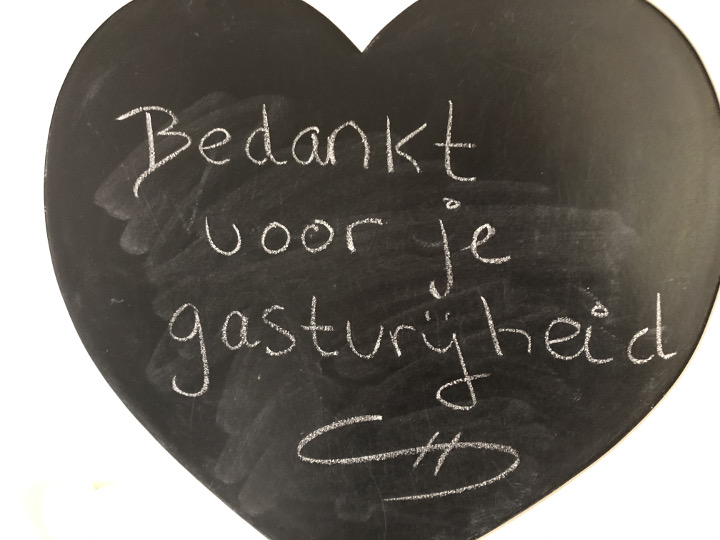 Bedankt
voor je
gastvrijheid